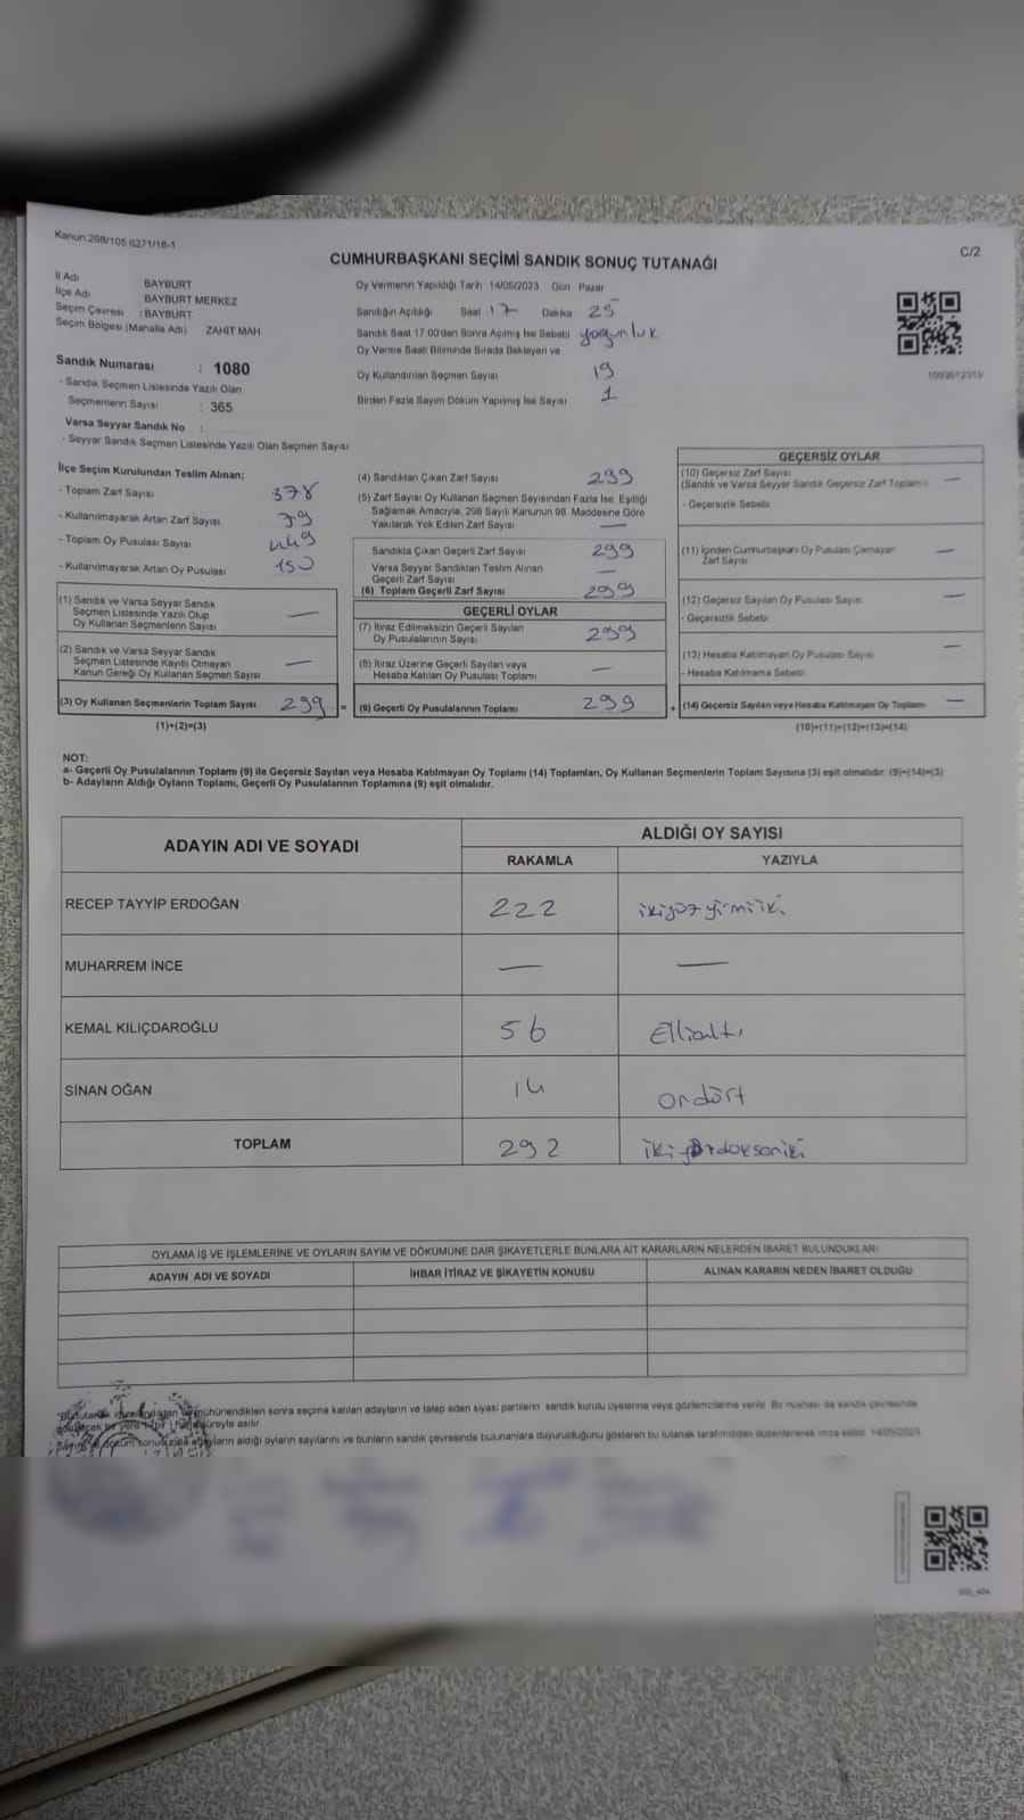 Kanun:298/105 6271/18-1
C/2
CUMHURBAŞKANI SEÇİMİ SANDIK SONUÇ TUTANAĞI
İl Adı BAYBURT
İlçe Adı BAYBURT MERKEZ
Seçim Çevresi : BAYBURT
Seçim Bölgesi (Mahalle Adı) ZAHİT MAH.
Oy Vermenin Yapıldığı Tarih 14/05/2023 Gün Pazar
Sandığın Açıldığı Saat 17 Dakika 25
Sandık Saat 17.00'den Sonra Açılmış İse Sebebi yoğunluk
Oy Verme Saati Bitiminde Sırada Bekleyen ve
Oy Kullandırılan Seçmen Sayısı 19
Birden Fazla Sayım Döküm Yapılmış İse Sayısı 1
Sandık Numarası : 1080
- Sandık Seçmen Listesinde Yazılı Olan
Seçmenlerin Sayısı : 365
Varsa Seyyar Sandık No :
- Seyyar Sandık Seçmen Listesinde Yazılı Olan Seçmen Sayısı
İlçe Seçim Kurulundan Teslim Alınan;
- Toplam Zarf Sayısı 378
- Kullanılmayarak Artan Zarf Sayısı 79
- Toplam Oy Pusulası Sayısı 449
- Kullanılmayarak Artan Oy Pusulası 150
(1) Sandık ve Varsa Seyyar Sandık
Seçmen Listesinde Yazılı Olup
Oy Kullanan Seçmenlerin Sayısı —
(2) Sandık ve Varsa Seyyar Sandık
Seçmen Listesinde Kayıtlı Olmayan
Kanun Gereği Oy Kullanan Seçmen Sayısı —
(3) Oy Kullanan Seçmenlerin Toplam Sayısı 299 =
(1)+(2)=(3)
(4) Sandıktan Çıkan Zarf Sayısı 299
(5) Zarf Sayısı Oy Kullanan Seçmen Sayısından Fazla İse, Eşitliği
Sağlamak Amacıyla, 298 Sayılı Kanunun 98. Maddesine Göre
Yakılarak Yok Edilen Zarf Sayısı —
Sandıkta Çıkan Geçerli Zarf Sayısı 299
Varsa Seyyar Sandıktan Teslim Alınan
Geçerli Zarf Sayısı —
(6) Toplam Geçerli Zarf Sayısı 299
GEÇERLİ OYLAR
(7) İtiraz Edilmeksizin Geçerli Sayılan
Oy Pusulalarının Sayısı 299
(8) İtiraz Üzerine Geçerli Sayılan veya
Hesaba Katılan Oy Pusulası Toplamı —
(9) Geçerli Oy Pusulalarının Toplamı 299 +
GEÇERSİZ OYLAR
(10) Geçersiz Zarf Sayısı
(Sandık ve Varsa Seyyar Sandık Geçersiz Zarf Toplamı) —
- Geçersizlik Sebebi:
(11) İçinden Cumhurbaşkanı Oy Pusulası Çıkmayan
Zarf Sayısı —
(12) Geçersiz Sayılan Oy Pusulası Sayısı —
- Geçersizlik Sebebi:
(13) Hesaba Katılmayan Oy Pusulası Sayısı —
- Hesaba Katılmama Sebebi:
(14) Geçersiz Sayılan veya Hesaba Katılmayan Oy Toplamı —
(10)+(11)+(12)+(13)=(14)
NOT:
a- Geçerli Oy Pusulalarının Toplamı (9) ile Geçersiz Sayılan veya Hesaba Katılmayan Oy Toplamı (14) Toplamları, Oy Kullanan Seçmenlerin Toplam Sayısına (3) eşit olmalıdır. (9)+(14)=(3)
b- Adayların Aldığı Oyların Toplamı, Geçerli Oy Pusulalarının Toplamına (9) eşit olmalıdır.
ADAYIN ADI VE SOYADI
ALDIĞI OY SAYISI
RAKAMLA YAZIYLA
RECEP TAYYİP ERDOĞAN 222 ikiyüzyirmiiki
MUHARREM İNCE — —
KEMAL KILIÇDAROĞLU 56 Ellialtı
SİNAN OĞAN 14 ondört
TOPLAM 292 ikiyüzdoksaniki
OYLAMA İŞ VE İŞLEMLERİNE VE OYLARIN SAYIM VE DÖKÜMÜNE DAİR ŞİKAYETLERLE BUNLARA AİT KARARLARIN NELERDEN İBARET BULUNDUKLARI
ADAYIN ADI VE SOYADI İHBAR İTİRAZ VE ŞİKAYETİN KONUSU ALINAN KARARIN NEDEN İBARET OLDUĞU
mühürlendikten sonra seçime katılan adayların ve talep eden siyasi partilerin sandık kurulu üyelerine veya gözlemcilerine verilir. Bir nüshası da sandık çevresinde
süreyle asılır.
adayların aldığı oyların sayılarını ve bunların sandık çevresinde bulunanlara duyurulduğunu gösteren bu tutanak tarafımızdan düzenlenerek imza edildi. 14/05/2023